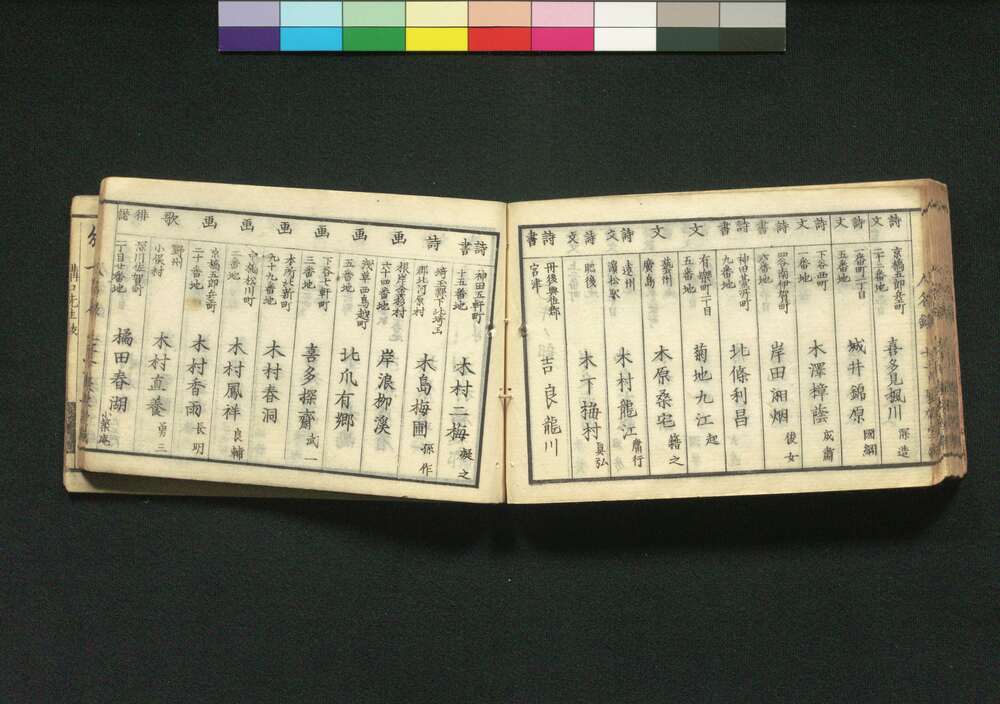 詩文 京橋五郎兵衛町二十二番地 喜多見楓川 深造
詩文 一番町二丁目五番地 城井錦原 國綱
詩文 下谷西町八番地 木澤樟蔭 成肅
詩書 四谷南伊賀町 番地 岸田湘烟 俊女
詩書 神田 町九番地 北條利昌
文 有樂町二丁目五番地 菊地九江 起
文 藝州廣島 木原桑宅 籍之
詩文 遠州濱松驛 木村龍江 庸行
詩文 肥後 木下梅村 真弘
詩書 丹後與佐郡宮津 吉良龍川
詩書 神田五軒町十五番地 木村二梅 凝之
詩 埼玉縣下北埼玉郡北河原村 木島梅圃 孫作
画 根岸金杉村六十四番地 岸浪柳溪
画 淺草西鳥越町五番地 北爪有郷
画 下谷七軒町三番地 喜多探齋 武一
画 本所北新町九十九番地 木村春洞
画 松川町二番地 木村鳳祥 良輔
画 京橋五郎兵衛町二十番地 木村香雨 長明
歌 野州小俣村 木村直養 勇三
俳諧 深川佐賀町一丁目廿番地 橘田春湖 小築庵
人名錄